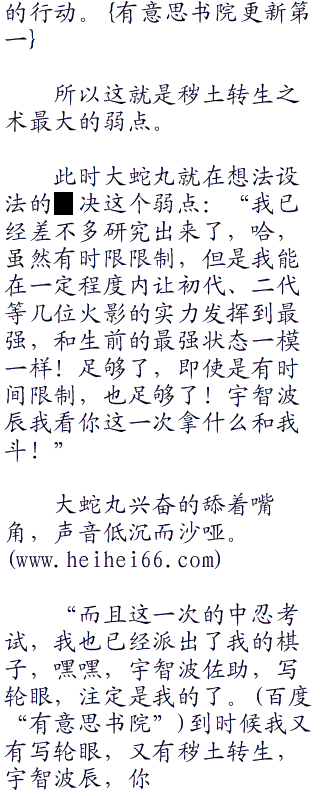 的行动。{有意思书院更新第
一}
所以这就是秽土转生之
术最大的弱点。
此时大蛇丸就在想法设
法的 决这个弱点：“我已
经差不多研究出来了，哈，
虽然有时限限制，但是我能
在一定程度内让初代、二代
等几位火影的实力发挥到最
强，和生前的最强状态一模
一样！足够了，即使是有时
间限制，也足够了！宇智波
辰我看你这一次拿什么和我
斗！”
大蛇丸兴奋的舔着嘴
角，声音低沉而沙哑。
(www.heihei66.com)
“而且这一次的中忍考
试，我也已经派出了我的棋
子，嘿嘿，宇智波佐助，写
轮眼，注定是我的了。(百度
“有意思书院”)到时候我又
有写轮眼，又有秽土转生，
宇智波辰，你